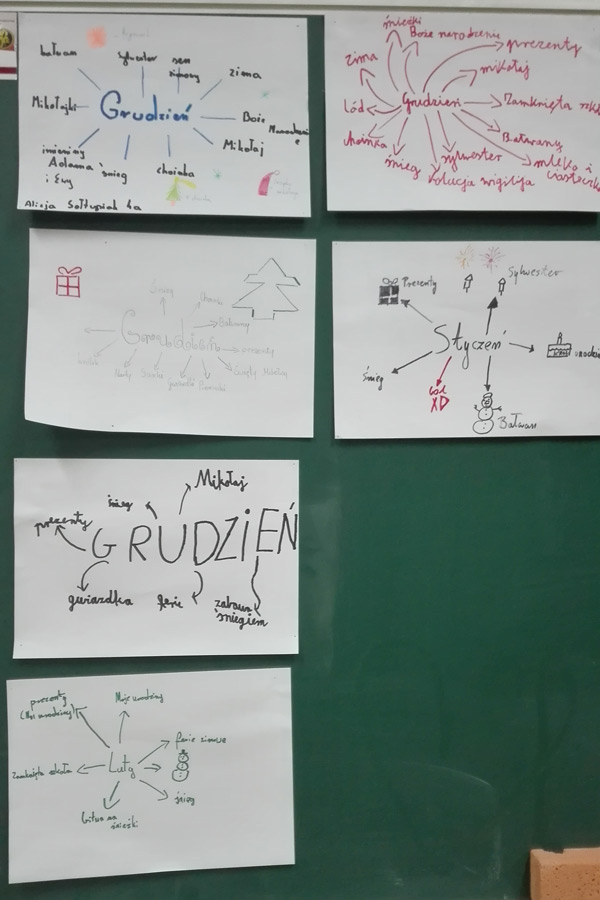 bałwan
sylwester
sen
zimowy
zima
Mikołajki
Grudzień
Boże
Narodzenie
Mikołaj
imieniny
Adama
i Ewy
śnieg
choinka
Alicja Sołtysiak 4a
śnieżki
Boże narodzenie
prezenty
zima
mikołaj
Grudzień
Lód
Zamknięta
Bałwany
choinka
śnieg
sylwester
mleko i
ciasteczka
kolacja wigilija
Śnieg
Choinka
Bałwany
prezenty
Święty Mikołaj
Prezenty
Sylwester
Styczeń
śnieg
XD
Bałwan
Mikołaj
śnieg
prezenty
GRUDZIEŃ
gwiazdka
ferie
zabawa
śniegiem
prezenty
Moje urodziny
ferie zimowe
Zamknięta szkoła
Luty
śnieg
Bitwa na
śnieżki